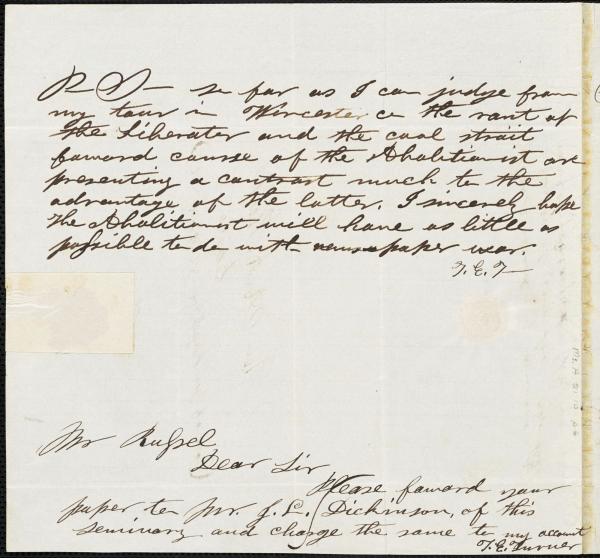 P S — so far as I can judge from
my tour in Worcester co the rant of
the Liberater and the cool strait
foward course of the Abolitionist are
presenting a contrast much to the
advantage of the latter. I sincerely hope
the Abolitionist will have as little as
possible to do with newspaper war.
T. E. T—
Mr Russel
Dear Sir
Please foward your
paper to Mr. J. L. Dickinson, of this
seminary and charge the same to my account
T. E. Turner